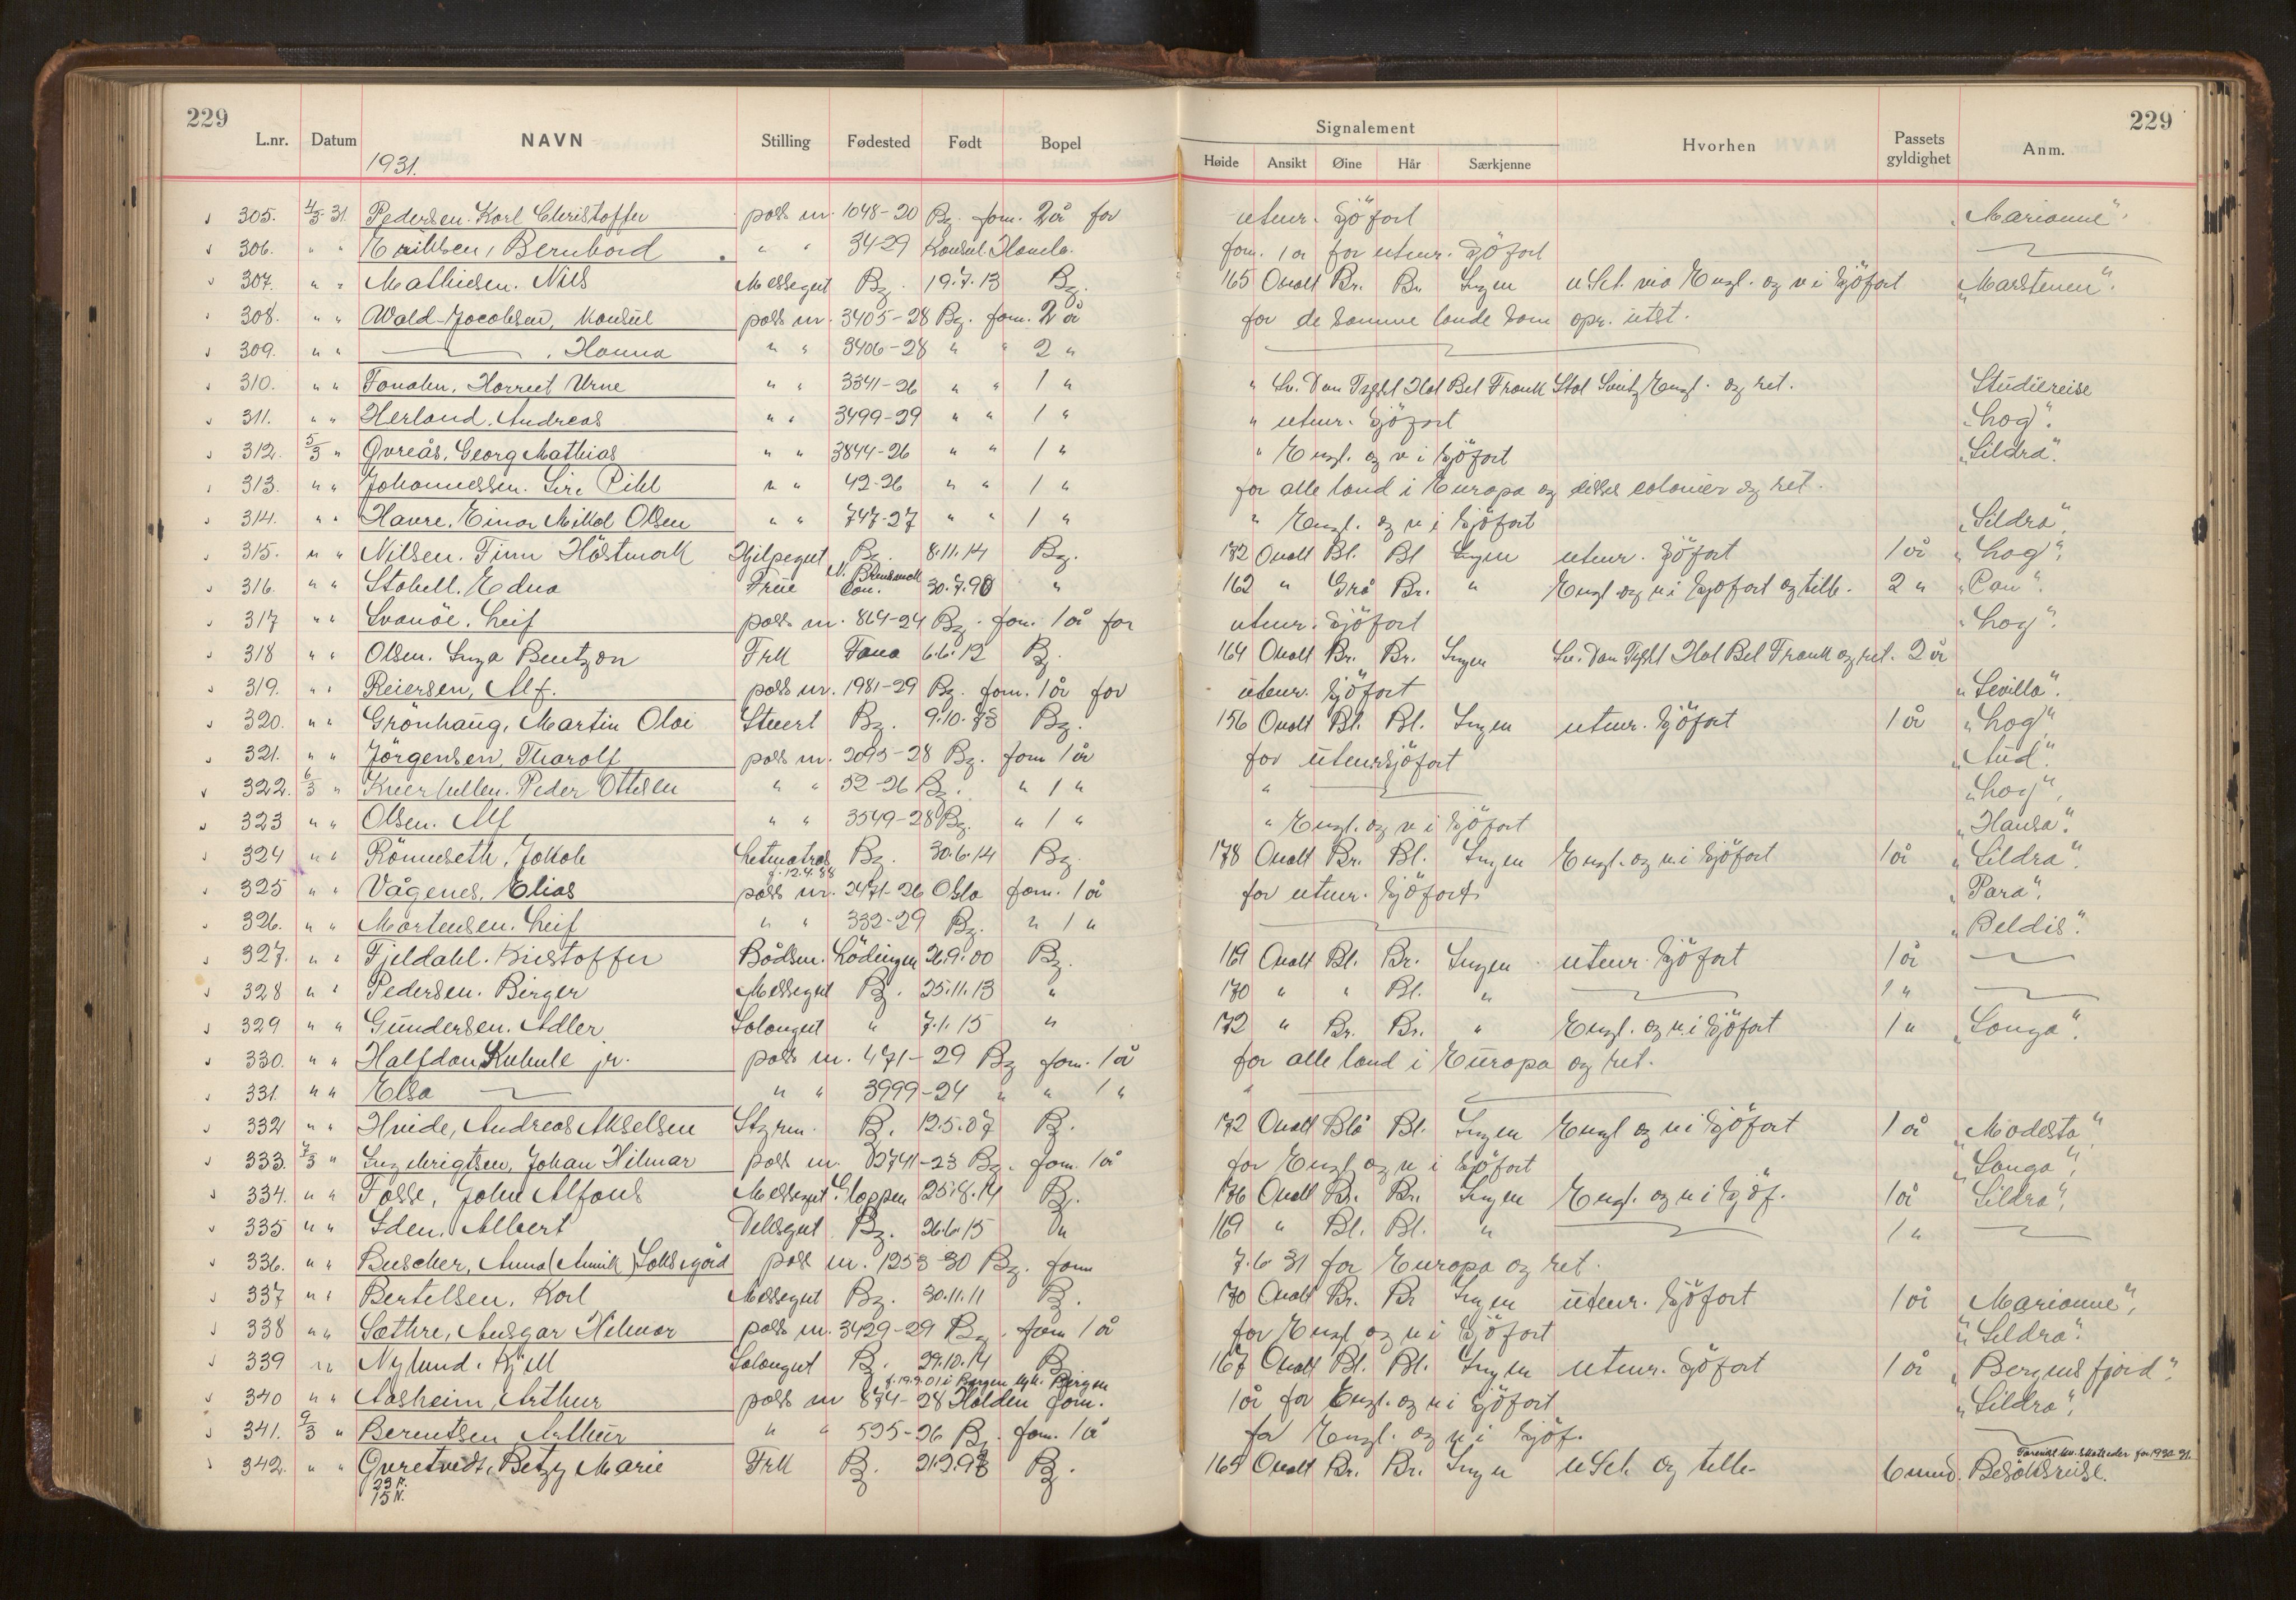 229
229
L.nr. Datum NAVN Stilling Fødested Født Bopel Signalement Hvorhen Passets gyldighet Anm.
Høide Ansikt Øine Hår Særkjenne
1931.
305. 4/3 31 Pedersen. Karl Christoffer pass nr. 1048-20 Bg. forn. 2 år for utenr. Sjöfart "Marianne".
306. " " Eriksen, Bernhard " " 34-29 Konsul. forn. 1 år for utenr. Sjöfart
307. " " Mathiesen. Nils Messegut Bg. 19.7.13 Bg. 165 Ovalt Br. Br. Ingen u.Sct. via Engl. og v i Sjöfart "Marstenen".
308. " " Wald-Jacobsen, Konsul pass nr. 3405-28 Bg. forn. 2 år for de samme lande som opr. utst.
309. " " , Hanna " " 3406-28 " " 2 "
310. " " Harriet Urne " " 3341-26 " " 1 " " Sv. Dan Tyskl Hol Bel Frank Ital Svitz Engl. og ret. Studiereise
311. " " Herland. Andreas " " 3499-29 " " 1 " " utenr. Sjöfart "Log".
312. 5/3 " Øvreås. Georg Mathias " " 3844-26 " " 1 " " Engl. og v i Sjöfart "Sildra".
313. " " Johannessen. Siri Pihl " " 42-26 " " 1 " for alle land i Europa og disses colonier og ret.
314. " " Havre. Einar Mikal Olsen " " 747-27 " " 1 " " Engl. og v i Sjöfart "Sildra".
315. " " Nilsen. Finn Höstmark Hjelpegut Bg. 8.11.14 Bg. 172 Ovalt Bl. Bl Ingen utenr. Sjöfart 1 år "Log".
316. " " Edna Frue N. Brunswick Can. 30.7.90 " 162 " Grå Br. " Engl og v i Sjöfart og tilb. 2 " "Pan".
317 " " Svanöe. Leif pass nr. 864-24 Bg. forn. 1 år for utenr. Sjöfart "Log".
318 " " Olsen. Inga Bentzon Frk Fana 6.6.12 Bg. 164 Ovalt Br. Br. Ingen Sv. Dan Tyskl Hol Bel Frank og ret. 2 år
319. " " Reiersen, Alf. pass nr. 1981-29 Bg. forn. 1 år for utenr. Sjöfart "Sevilla".
320. " " Grönhaug, Martin Olai Stuert Bg. 9.10.88 Bg. 156 Ovalt Bl. Bl. Ingen utenr. Sjöfart 1 år "Log".
321. " " Jörgensen, Tharolf pass nr. 2095-28 Bg. forn 1 år for utenr. Sjöfart "Aud".
322. 6/3 " Peder Ottesen " " 52-26 Bg. " 1 " " "Log".
323 " " Olsen. Alf " " 3549-28 Bg. " 1 " " Engl. og v i Sjöfart "Hansa".
324 " " Jakob Letmatros Bg. 30.6.14 Bg. 178 Ovalt Br. Bl. Ingen Engl. og v. i Sjöfart 1 år "Sildra".
f. 12.4.88
325 " " Vågenes, Elias pass nr. 2471-26 Oslo forn. 1 år for utenr. Sjöfart "Para".
326. " " Mortensen. Leif " " 332-29 Bg. " 1 " "Beldis".
327. " " Fjeldahl. Kristoffer Bådsm. Lödingen 26.9.00 Bg. 169 Ovalt Bl. Br. Ingen utenr. Sjöfart 1 år
328 " " Pedersen. Birger Messegut Bg. 25.11.13 " 170 " " Bl. " 1 "
329 " " Gundersen. Adler Salongut " 7.1.15 " 172 " Br. Br. " Engl. og v. i Sjöfart 1 " "Songa".
330. " " Halfdan Kuhnle jr. pass nr. 471-29 Bg forn. 1 år for alle land i Europa og ret.
331. " " Elsa " " 3999-24 " " 1 " "
332 " " Hvide, Andreas Akselsen Styrm. B. 12.5.07 B. 172 Ovalt Blå Bl. Ingen Engl og v i Sjöfart 1 år "Modesta".
333. 7/3 " Ingebrigtsen, Johan Hilmar pass nr. 2741-23 Bg. forn. 1 år for Engl og v i Sjöfart "Songa".
334. " " Fosse, John Alfons Messegut Gloppen 25.8.14 B. 176 Ovalt Br. Br. Ingen Engl. og v i Sjöf. 1 år "Sildra".
335 " " Iden. Albert Dekksgut Bg. 26.6.15 " 169 " Bl. Bl. " 1 "
336. " " Buscher, Anna (Annik) pass nr. 1253-30 Bg. forn 7.6 31 for Europa og ret.
337 " " Bertelsen. Karl Messegut Bg. 30.11.11 B. 170 Ovalt Br. Br Ingen utenr. Sjöfart 1 år "Marianne".
338 " " Sæthre, Ansgar Hilmar pass nr. 3429-29 Bg. forn 1 år for Engl og v i Sjöfart "Sildra".
339 " " Nylund. Kjell Salongut B. 29.10.14 B 167 Ovalt Bl. Bl. Ingen utenr. Sjöfart 1 år "Bergensfjord".
f. 19.9.01 i Bergen Bergen
340 " " Aasheim, Arthur pass nr 874-28 Halden forn. 1 år for Engl. og v i Sjöfart "Sildra".
341. 9/3 " Berentsen Arthur " " 535-26 B. forn. 1 år for Engl. og v i Sjöf.
342. " " Øvretvedt, Betzy Marie Frk B. 21.2.98 B. 165 Ovalt Br. Br. Ingen u.Sct. og tilb. 6 mnd. Besöksreise.
23 F.
15 N.